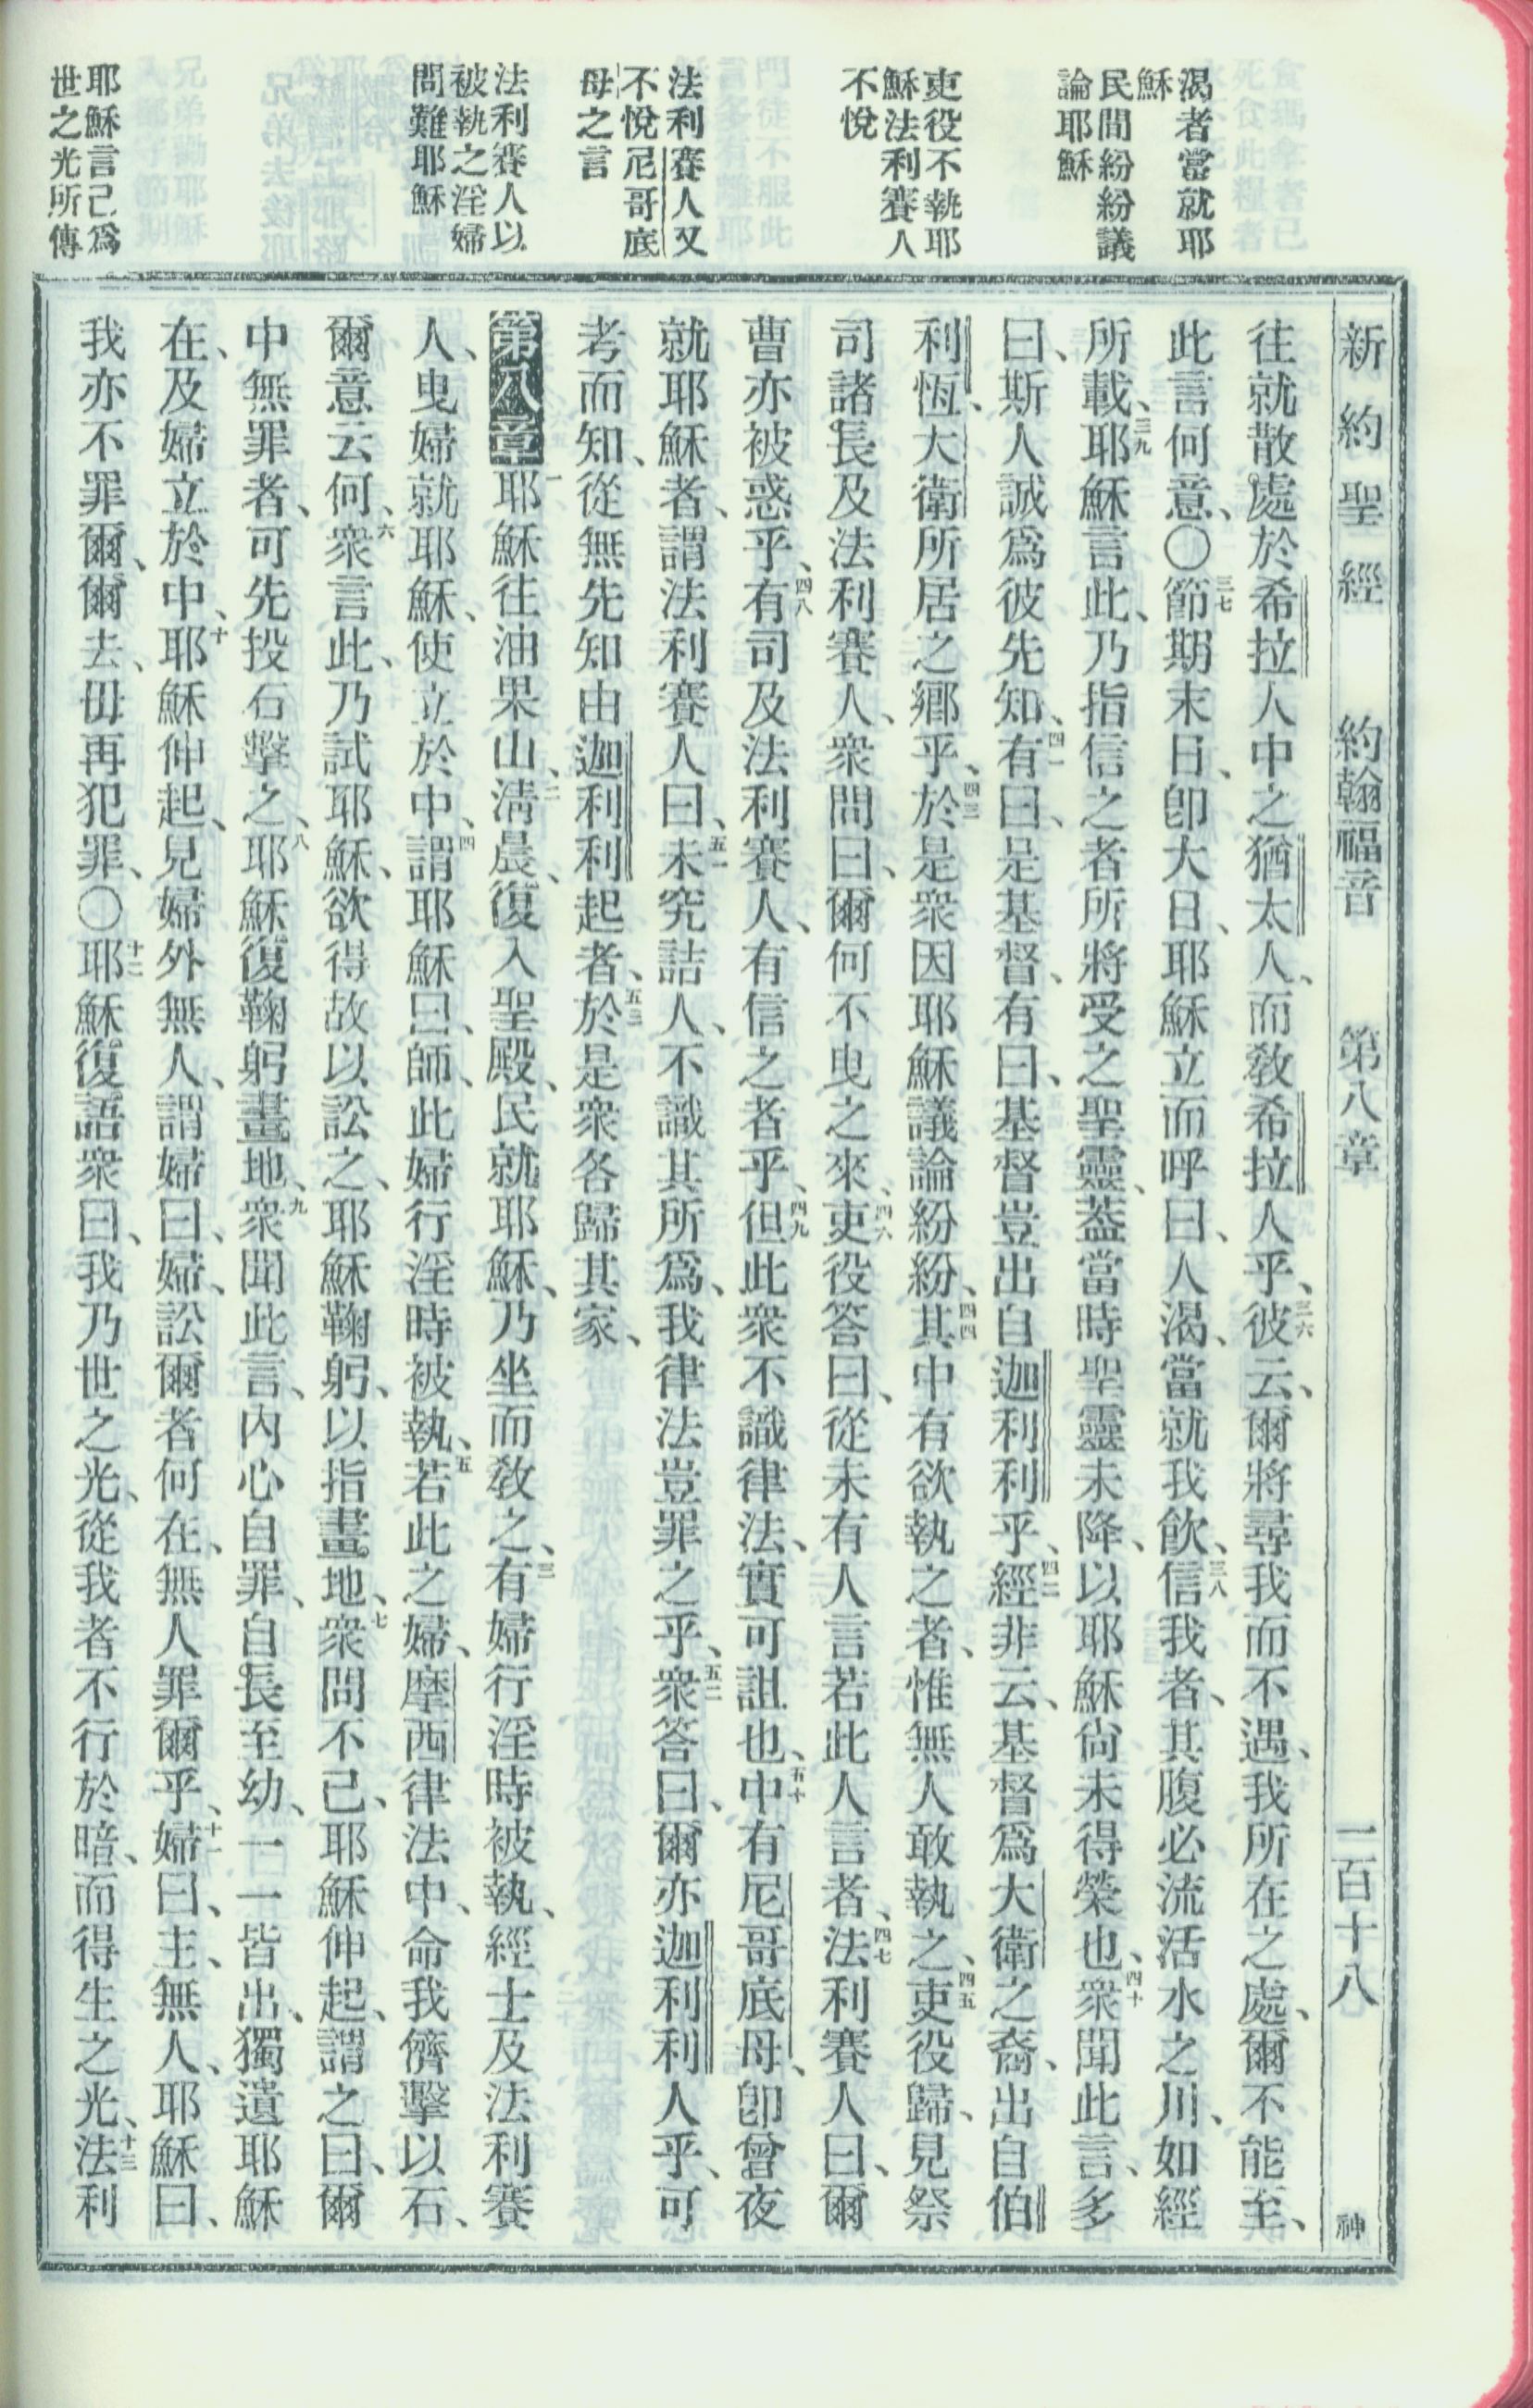 新約聖經　約翰福音　第八章　一百十八　神
渴者當就耶
穌
民間紛紛議
論耶穌
吏役不執耶
穌法利賽人
不悅
法利賽人又
不悅尼哥底
母之言
法利賽人以
被執之淫婦
問難耶穌
耶穌言己爲
世之光所傳
往就散處於希拉人中之猶太人、而敎希拉人乎、三六彼云、爾將尋我而不遇、我所在之處、爾不能至、
此言何意、〇三七節期末日、卽大日、耶穌立而呼曰、人渴、當就我飮、三八信我者、其腹必流活水之川、如經
所載、三九耶穌言此、乃指信之者所將受之聖靈、葢當時聖靈未降、以耶穌尙未得榮也、四十衆聞此言、多
曰、斯人誠爲彼先知、四一有曰、是基督、有曰、基督豈出自迦利利乎、四二經非云、基督爲大衛之裔、出自伯
利恆、大衛所居之鄕乎、四三於是衆因耶穌議論紛紛、四四其中有欲執之者、惟無人敢執之、四五吏役歸、見祭
司諸長及法利賽人、衆問曰、爾何不曳之來、四六吏役答曰、從未有人言若此人言者、四七法利賽人曰、爾
曹亦被惑乎、四八有司及法利賽人、有信之者乎、四九但此衆不識律法、實可詛也、五十中有尼哥底母、卽曾夜
就耶穌者、謂法利賽人曰、五一未究詰人、不識其所爲、我律法豈罪之乎、五二衆答曰、爾亦迦利利人乎、可
考而知、從無先知由迦利利起者、五三於是衆各歸其家、
第八章一耶穌往油果山、二淸晨、復入聖殿、民就耶穌、乃坐而敎之、三有婦行淫時被執、經士及法利賽
人、曳婦就耶穌、使立於中、四謂耶穌曰、師、此婦行淫時被執、五若此之婦、摩西律法中、命我儕擊以石、
爾意云何、六衆言此、乃試耶穌、欲得故以訟之、耶穌鞠躬、以指畫地、七衆問不已、耶穌伸起、謂之曰、爾
中無罪者、可先投石擊之、八耶穌復鞠躬畫地、九衆聞此言、內心自罪、自長至幼、一一皆出、獨遺耶穌
在、及婦立於中、十耶穌伸起、見婦外無人、謂婦曰、婦、訟爾者何在、無人罪爾乎、十一婦曰、主、無人、耶穌曰、
我亦不罪爾、爾去、毋再犯罪、〇十二耶穌復語衆曰、我乃世之光、從我者不行於暗、而得生之光、十三法利